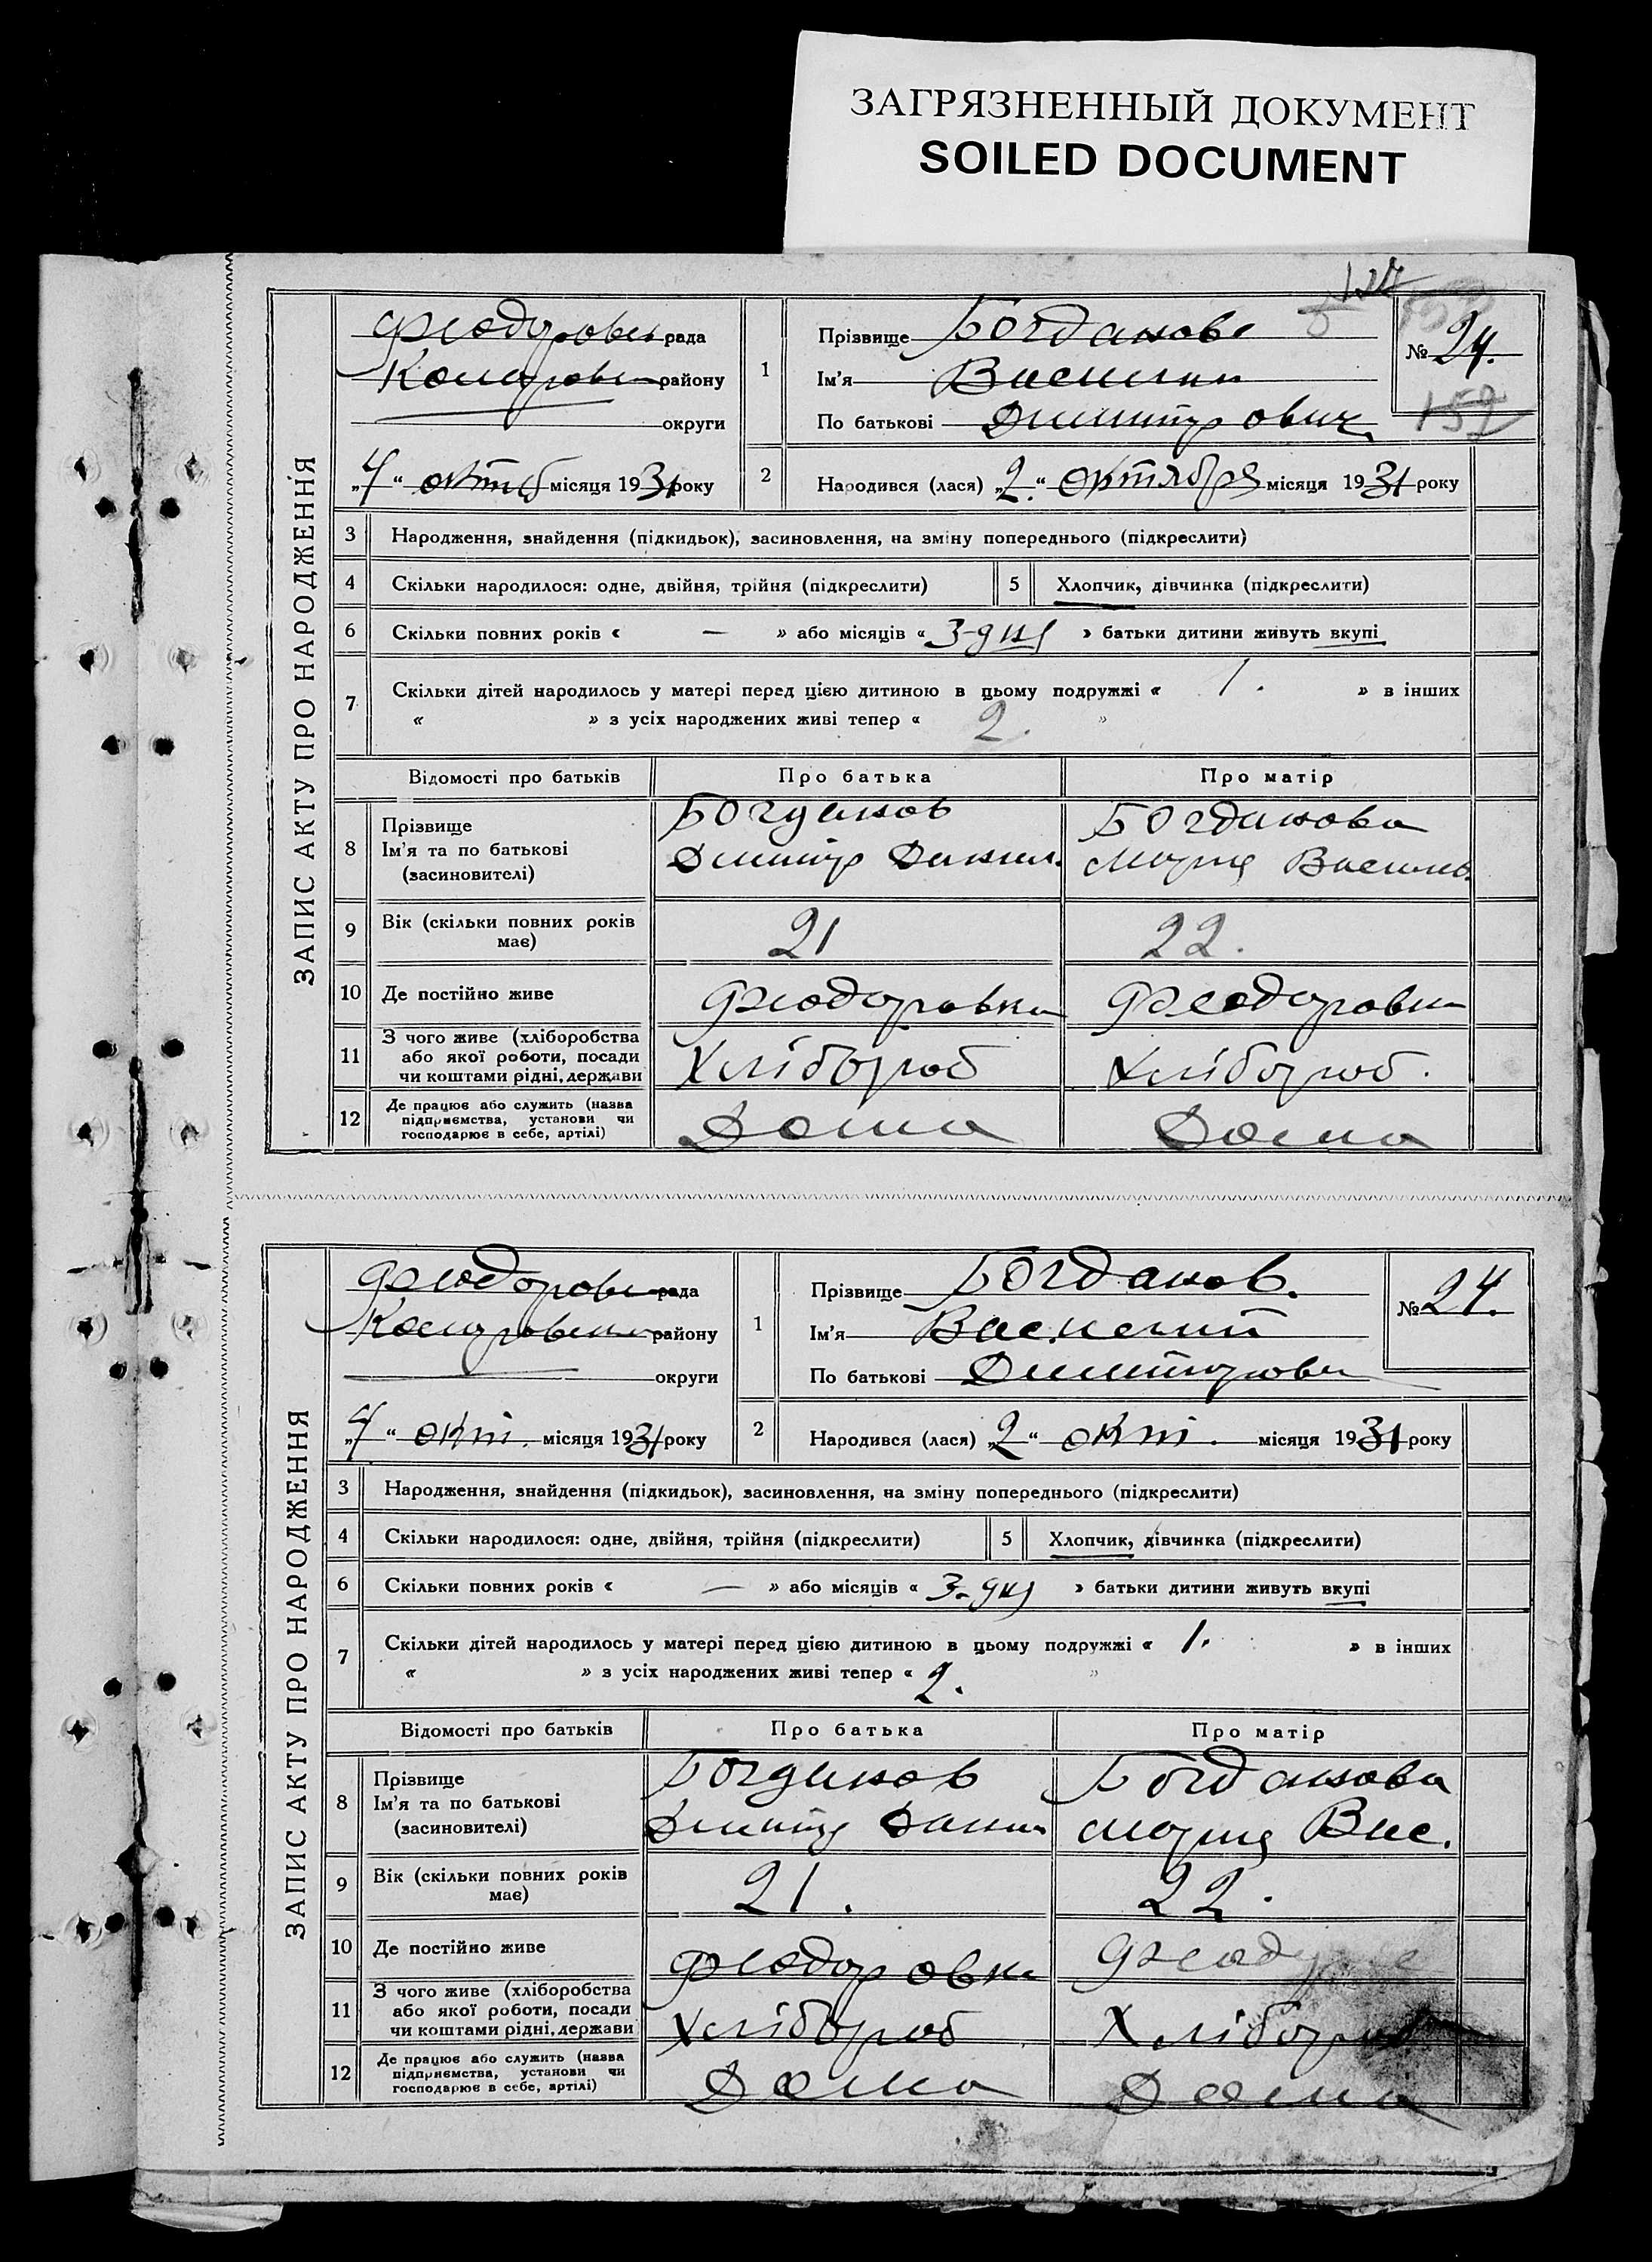 ЗАГРЯЗНЕННЫЙ ДОКУМЕНТ
SOILED DOCUMENT
ЗАПИС АКТУ ПРО НАРОДЖЕННЯ
рада
району
округи
„4“ октяб місяця 1931 року
1
Прізвище Богданов
Ім'я Василий
По батькові Дмитрович
№ 24.
157
2
Народився (лася) „2“ октября місяця 1931 року
3 Народження, знайдення (підкидьок), засиновлення, на зміну попереднього (підкреслити)
4 Скільки народилося: одне, двійня, трійня (підкреслити) 5 Хлопчик, дівчинка (підкреслити)
6 Скільки повних років « — » або місяців « 3-дня » батьки дитини живуть вкупі
7 Скільки дітей народилось у матері перед цією дитиною в цьому подружжі « 1. » в інших
« » з усіх народжених живі тепер « 2. »
Відомості про батьків Про батька Про матір
8 Прізвище Богданов Богданова
Ім'я та по батькові Дмитр Данил. Мария Василь.
(засиновителі)
9 Вік (скільки повних років має) 21 22.
10 Де постійно живе Феодоровка Феодоровка
11 З чого живе (хліборобства або якої роботи, посади чи коштами рідні, держави Хлібороб Хлібороб.
12 Де працює або служить (назва підприємства, установи чи господарює в себе, артілі) Дома Дома
ЗАПИС АКТУ ПРО НАРОДЖЕННЯ
рада
району
округи
„4“ окт. місяця 1931 року
1
Прізвище Богданов.
Ім'я Василий
По батькові Дмитрови
№ 24.
2
Народився (лася) „2“ окт. місяця 1931 року
3 Народження, знайдення (підкидьок), засиновлення, на зміну попереднього (підкреслити)
4 Скільки народилося: одне, двійня, трійня (підкреслити) 5 Хлопчик, дівчинка (підкреслити)
6 Скільки повних років « — » або місяців « 3-дня » батьки дитини живуть вкупі
7 Скільки дітей народилось у матері перед цією дитиною в цьому подружжі « 1. » в інших
« » з усіх народжених живі тепер « 2. »
Відомості про батьків Про батька Про матір
8 Прізвище Богданов Богданова
Ім'я та по батькові Дмитр Данил Мария Вас.
(засиновителі)
9 Вік (скільки повних років має) 21. 22.
10 Де постійно живе Феодоровка
11 З чого живе (хліборобства або якої роботи, посади чи коштами рідні, держави Хлібороб Хлібороб
12 Де працює або служить (назва підприємства, установи чи господарює в себе, артілі) Дома Дома